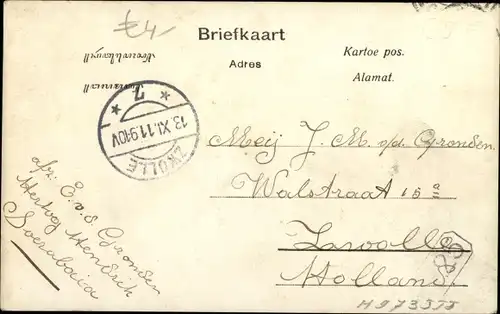 £4
Briefkaart
Adres
Kartoe pos.
Alamat.
ZWOLLE
13.XI.11.9-10V
7
Meij J. M. v/d. Gronden
Walstraat 15 a
Zwolle
Holland.
afz: E. v. d. Gronden
Hertog Hendrik
Soerabaia
H973